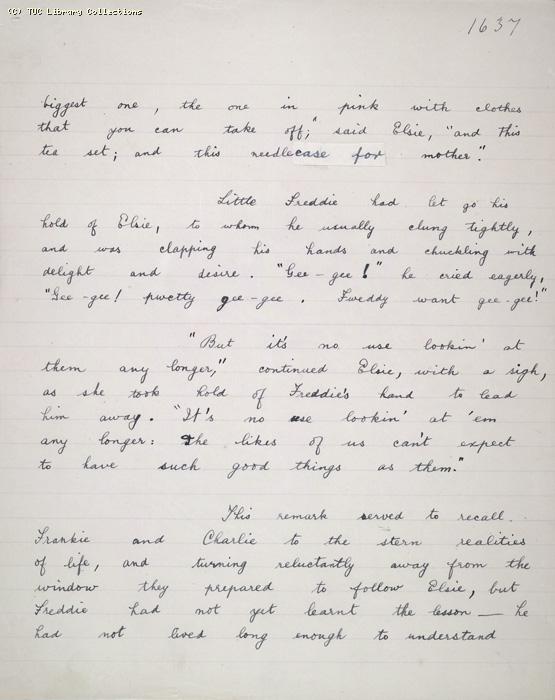 (C) TUC Library Collections
1637
biggest one, the one in pink with clothes
that you can take off;" said Elsie, "and this
tea set; and this needlecase for mother."
Little Freddie had let go his
hold of Elsie, to whom he usually clung tightly,
and was clapping his hands and chuckling with
delight and desire. "Gee-gee!" he cried eagerly,
"Gee-gee! pwetty gee-gee. Fweddy want gee-gee!"
"But it's no use lookin' at
them any longer," continued Elsie, with a sigh,
as she took hold of Freddie's hand to lead
him away. "It's no use lookin' at 'em
any longer: The likes of us can't expect
to have such good things as them."
This remark served to recall.
Frankie and Charlie to the stern realities
of life, and turning reluctantly away from the
window they prepared to follow Elsie, but
Freddie had not yet learnt the lesson — he
had not lived long enough to understand